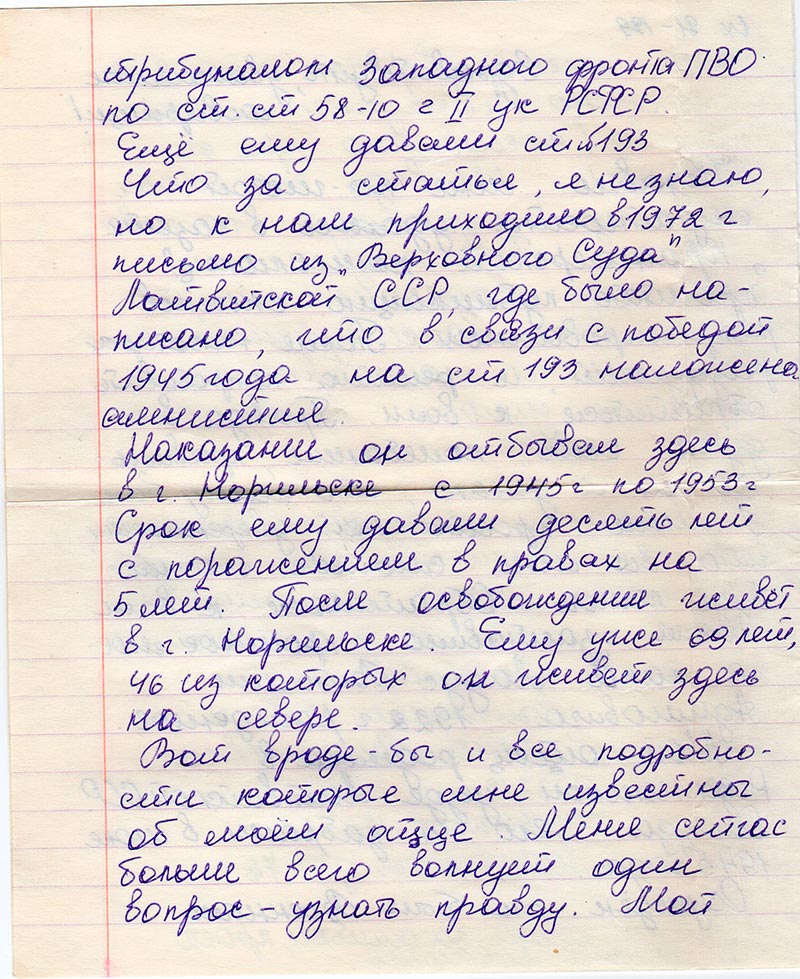 трибуналом Западного фронта ПВО
по ст ст 58-10 г II ук РСФСР.
Ещё ему давали ст 193
Что за статья, я не знаю,
но к нам приходило в 1972 г
письмо из „Верховного Суда"
Латвийской ССР, где было на-
писано, что в связи с победой
1945 года на ст 193 наложена
амнистия.
Наказании он отбывал здесь
в г. Норильске с 1945 г по 1953 г
Срок ему давали десять лет
с поражением в правах на
5 лет. После освобождении живёт
в г. Норильске. Ему уже 69 лет,
46 из которых он живёт здесь
на севере.
Вот вроде-бы и все подробно-
сти которые мне известны
об моём отце. Меня сейчас
больше всего волнует один
вопрос - узнать правду. Мой